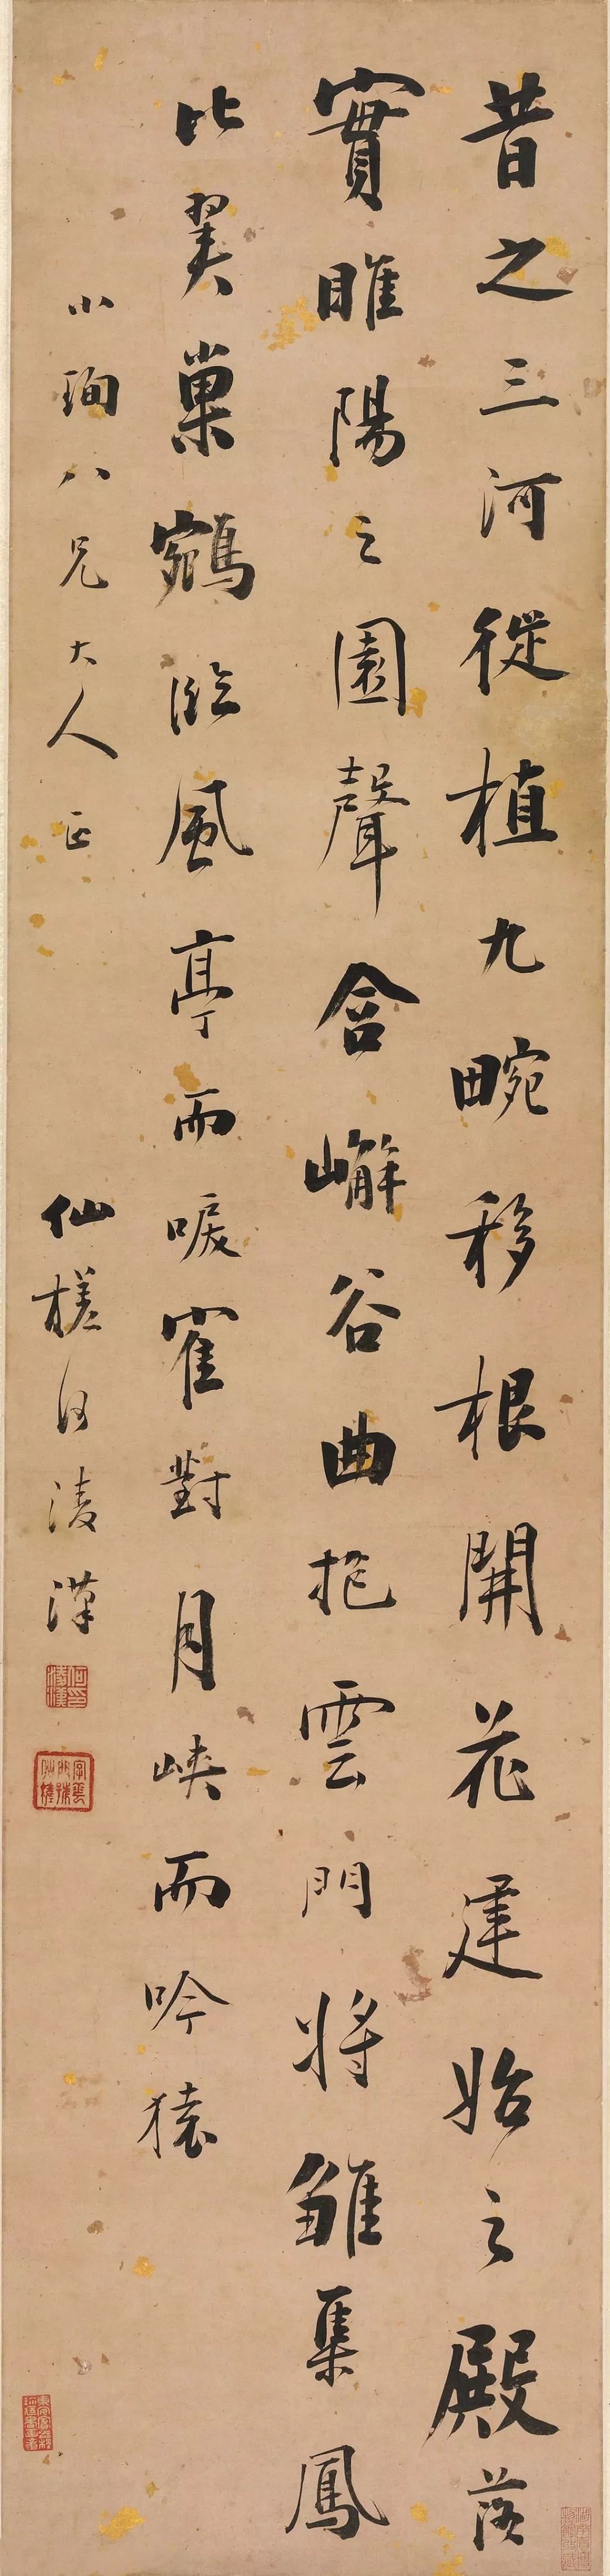 昔之三河從植九畹移根開花建始之殿落
實睢陽之園聲含嶰谷曲抱雲門將雛集鳳
比翼巢鵷臨風亭而唳寉對月峽而吟猿
小珣八兄大人正
仙槎何淩漢